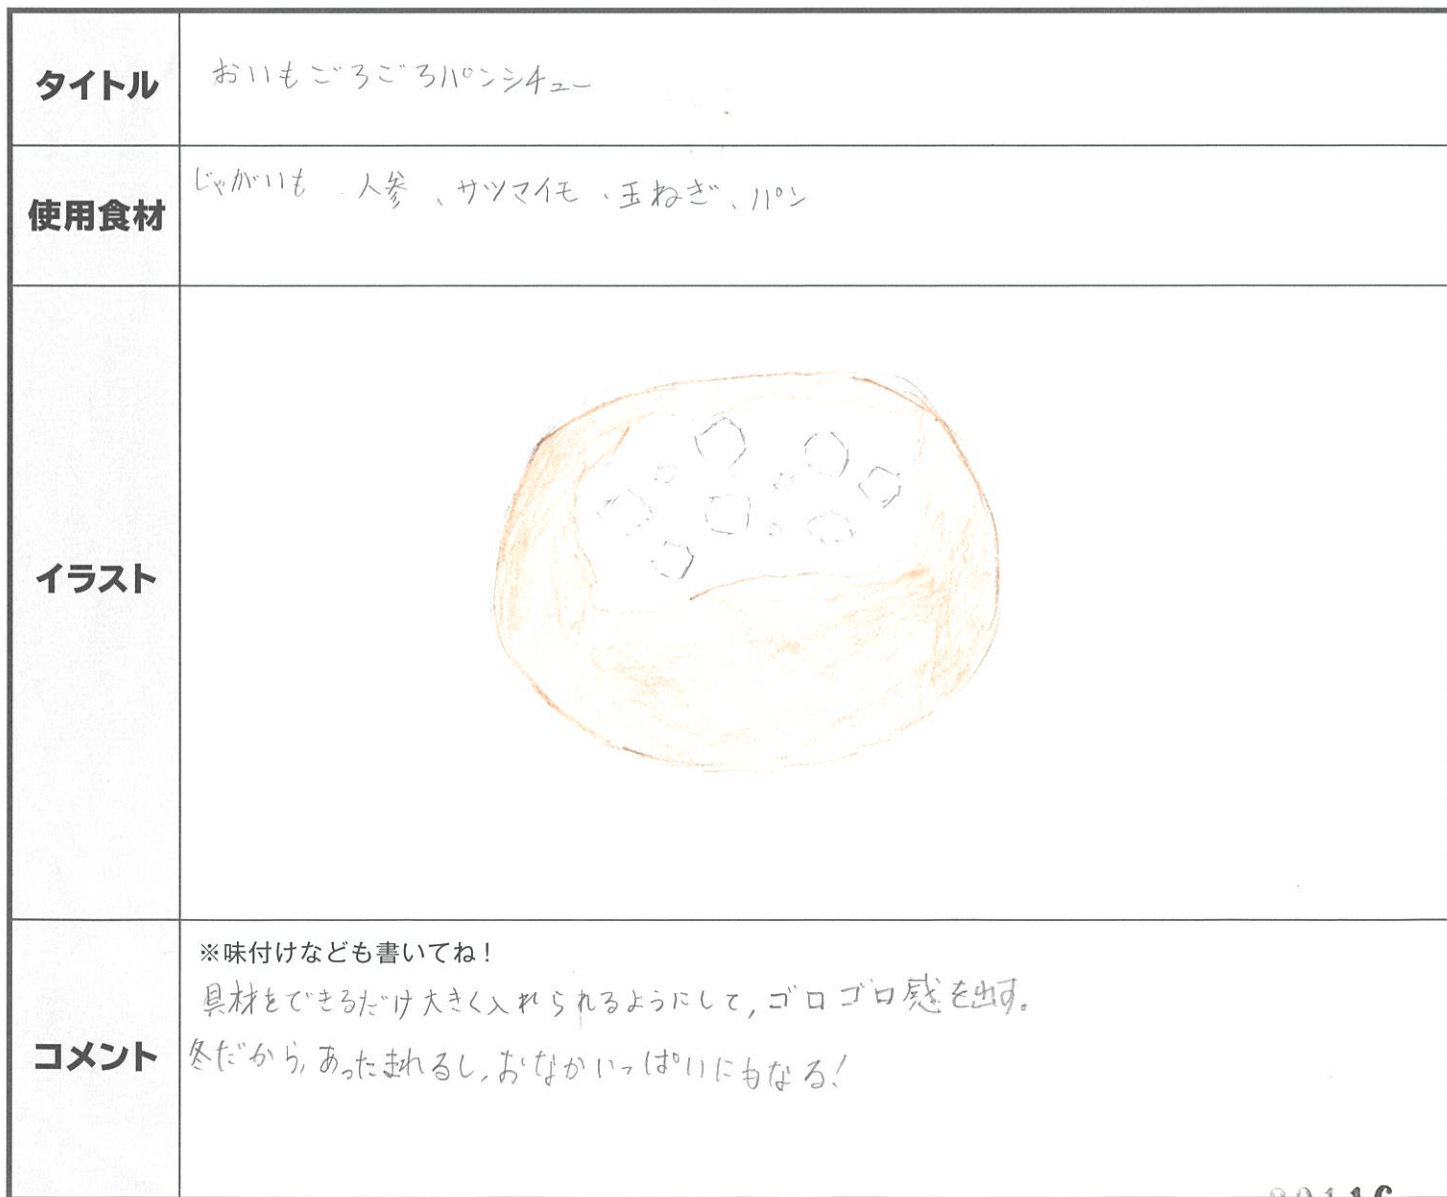 タイトル
おいもごろごろパンシチュー
使用食材
じゃがいも、人参、サツマイモ、玉ねぎ、パン
イラスト
コメント
※味付けなども書いてね!
具材をできるだけ大きく入れられるようにして、ゴロゴロ感を出す。
冬だから、あったまれるし、おなかいっぱいにもなる!